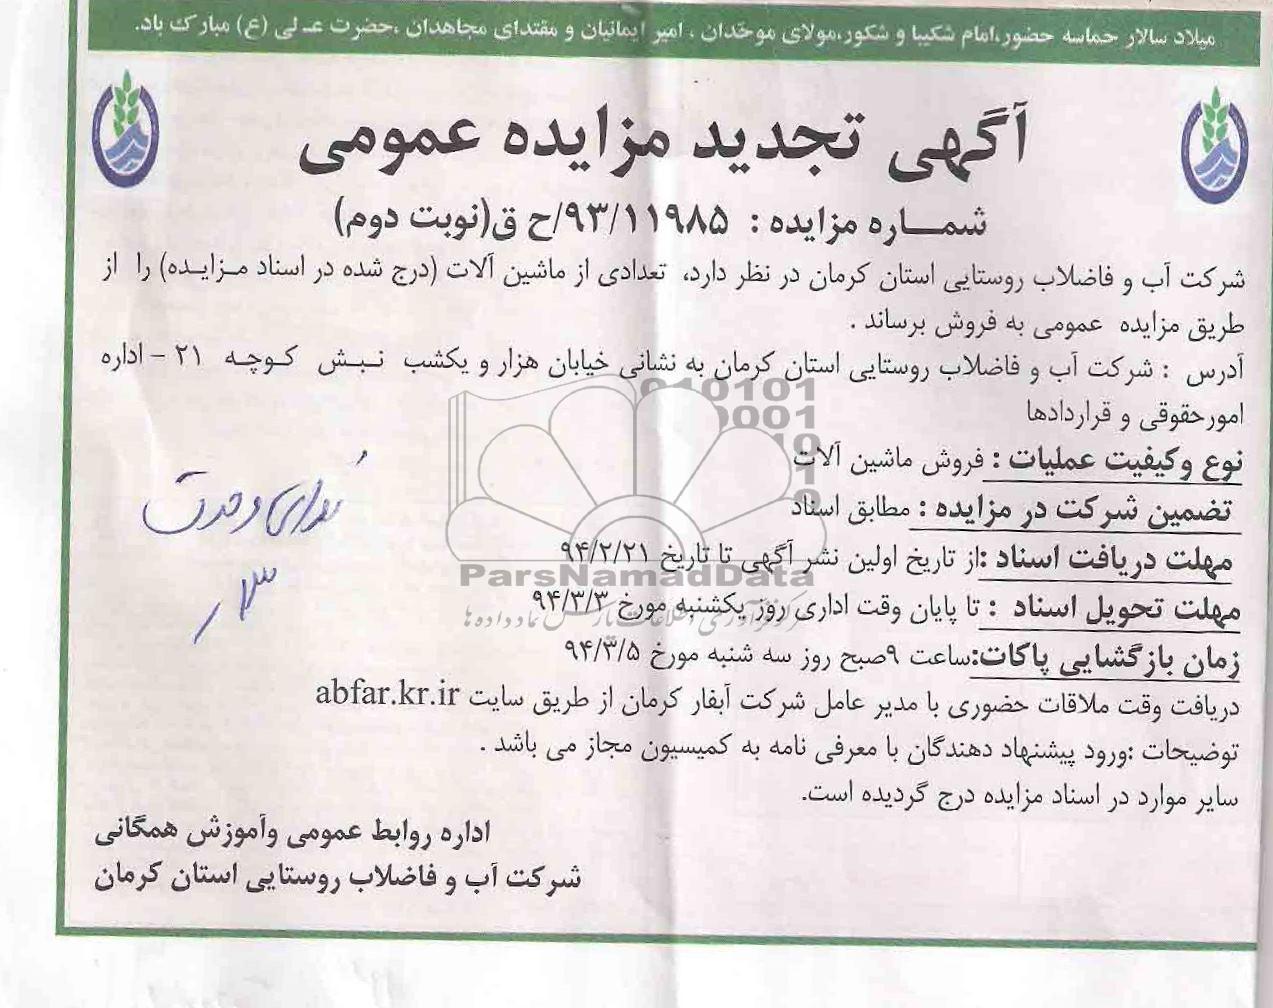 میلاد سالار حماسه حضور،امام شکیبا و شکور،مولای موحّدان ، امیر ایمانیان و مقتدای مجاهدان ،حضرت عـلی (ع) مبارک باد.
آگهی تجدید مزایده عمومی
شمـــاره مزایده : ۹۳/۱۱۹۸۵/ح ق(نوبت دوم)
شرکت آب و فاضلاب روستایی استان کرمان در نظر دارد، تعدادی از ماشین آلات (درج شده در اسناد مـزایـده) را از
طریق مزایده عمومی به فروش برساند .
آدرس : شرکت آب و فاضلاب روستایی استان کرمان به نشانی خیابان هزار و یکشب نـبـش کـوچـه ۲۱ - اداره
امورحقوقی و قراردادها
نوع وکیفیت عملیات : فروش ماشین آلات
تضمین شرکت در مزایده : مطابق اسناد
مهلت دریافت اسناد :از تاریخ اولین نشر آگهی تا تاریخ ۹۴/۲/۲۱
مهلت تحویل اسناد : تا پایان وقت اداری روز یکشنبه مورخ ۹۴/۳/۳
زمان بازگشایی پاکات:ساعت ۹صبح روز سه شنبه مورخ ۹۴/۳/۵
دریافت وقت ملاقات حضوری با مدیر عامل شرکت آبفار کرمان از طریق سایت abfar.kr.ir
توضیحات :ورود پیشنهاد دهندگان با معرفی نامه به کمیسیون مجاز می باشد .
سایر موارد در اسناد مزایده درج گردیده است.
اداره روابط عمومی وآموزش همگانی
شرکت آب و فاضلاب روستایی استان کرمان
ParsNamadData